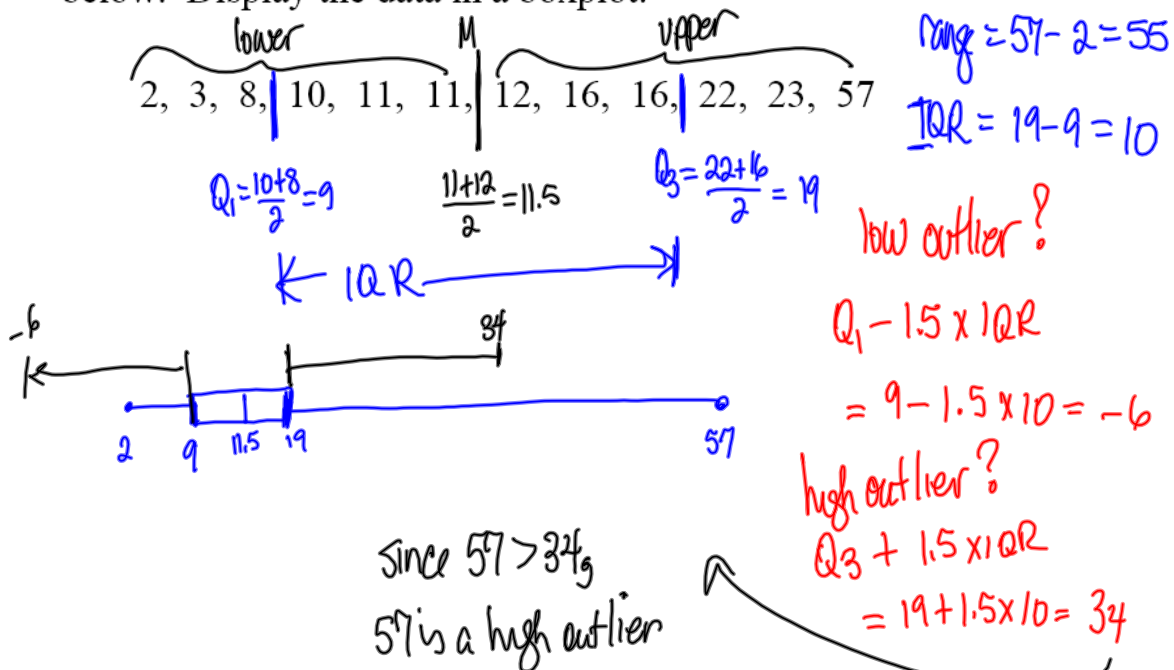 below? Display the data in a boxplot.
lower M upper
2, 3, 8, 10, 11, 11, 12, 16, 16, 22, 23, 57
range = 57 - 2 = 55
IQR = 19 - 9 = 10
Q1 = 10+8/2 = 9
11+12/2 = 11.5
Q3 = 22+16/2 = 19
IQR
low outlier?
Q1 - 1.5 x IQR
= 9 - 1.5 x 10 = -6
-6
34
2 9 11.5 19 57
high outlier?
Q3 + 1.5 x IQR
= 19 + 1.5 x 10 = 34
since 57 > 34,
57 is a high outlier